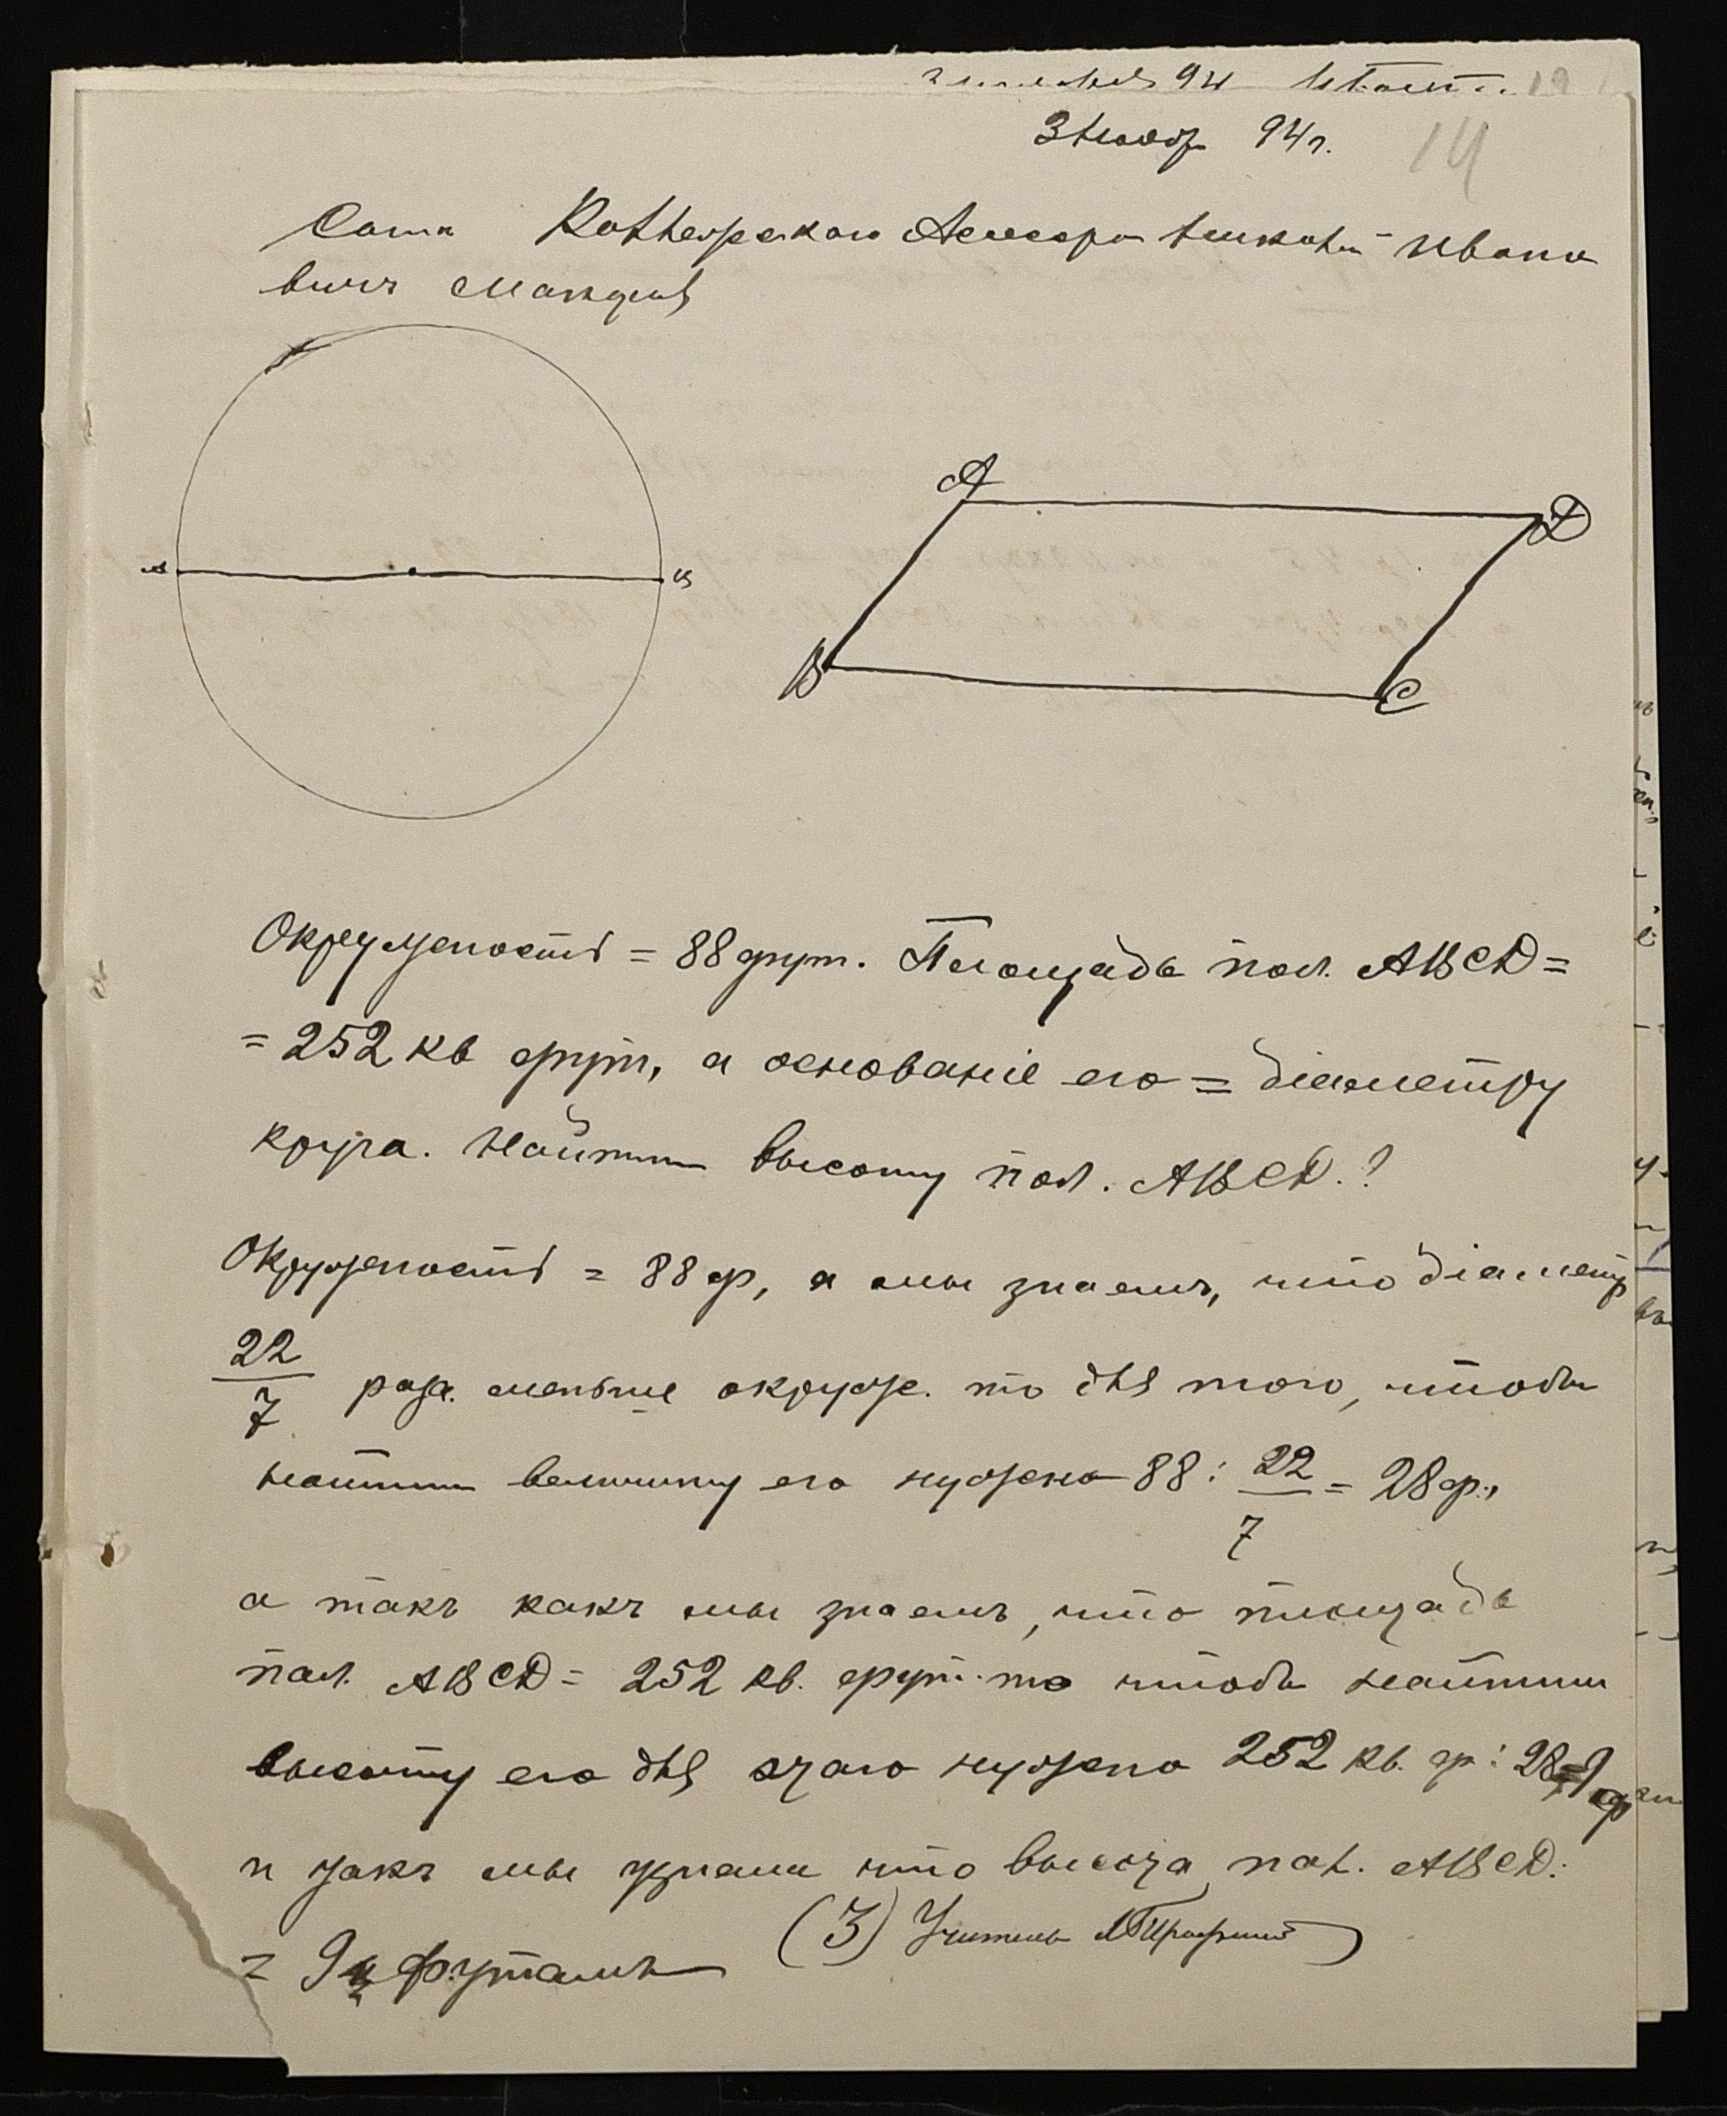 94
3 Ноябр 94 г. 14
Сына Коллежскаго Ассесора Николай Ивано
вичъ
А В
А D
В С
Окружность = 88 фут. Площадь пол. ABCD =
= 252 кв фут, а основаніе его = діаметру
круга. Найти высоту пол. ABCD.?
Окружность = 88 ф, а мы знаемъ, что діаметр
22/7 раза меньше окруж. то для того, чтобы
найти величину его нужно 88 : 22/7 = 28 ф.,
а такъ какъ мы знаемъ, что площадь
пал. ABCD = 252 кв. фут. то чтобы найти
высоту его для этаго нужно 252 кв. ф : 28 = 9 ф
и такъ мы узнали что высота пал. ABCD.
= 9 футамъ (3) Учитель